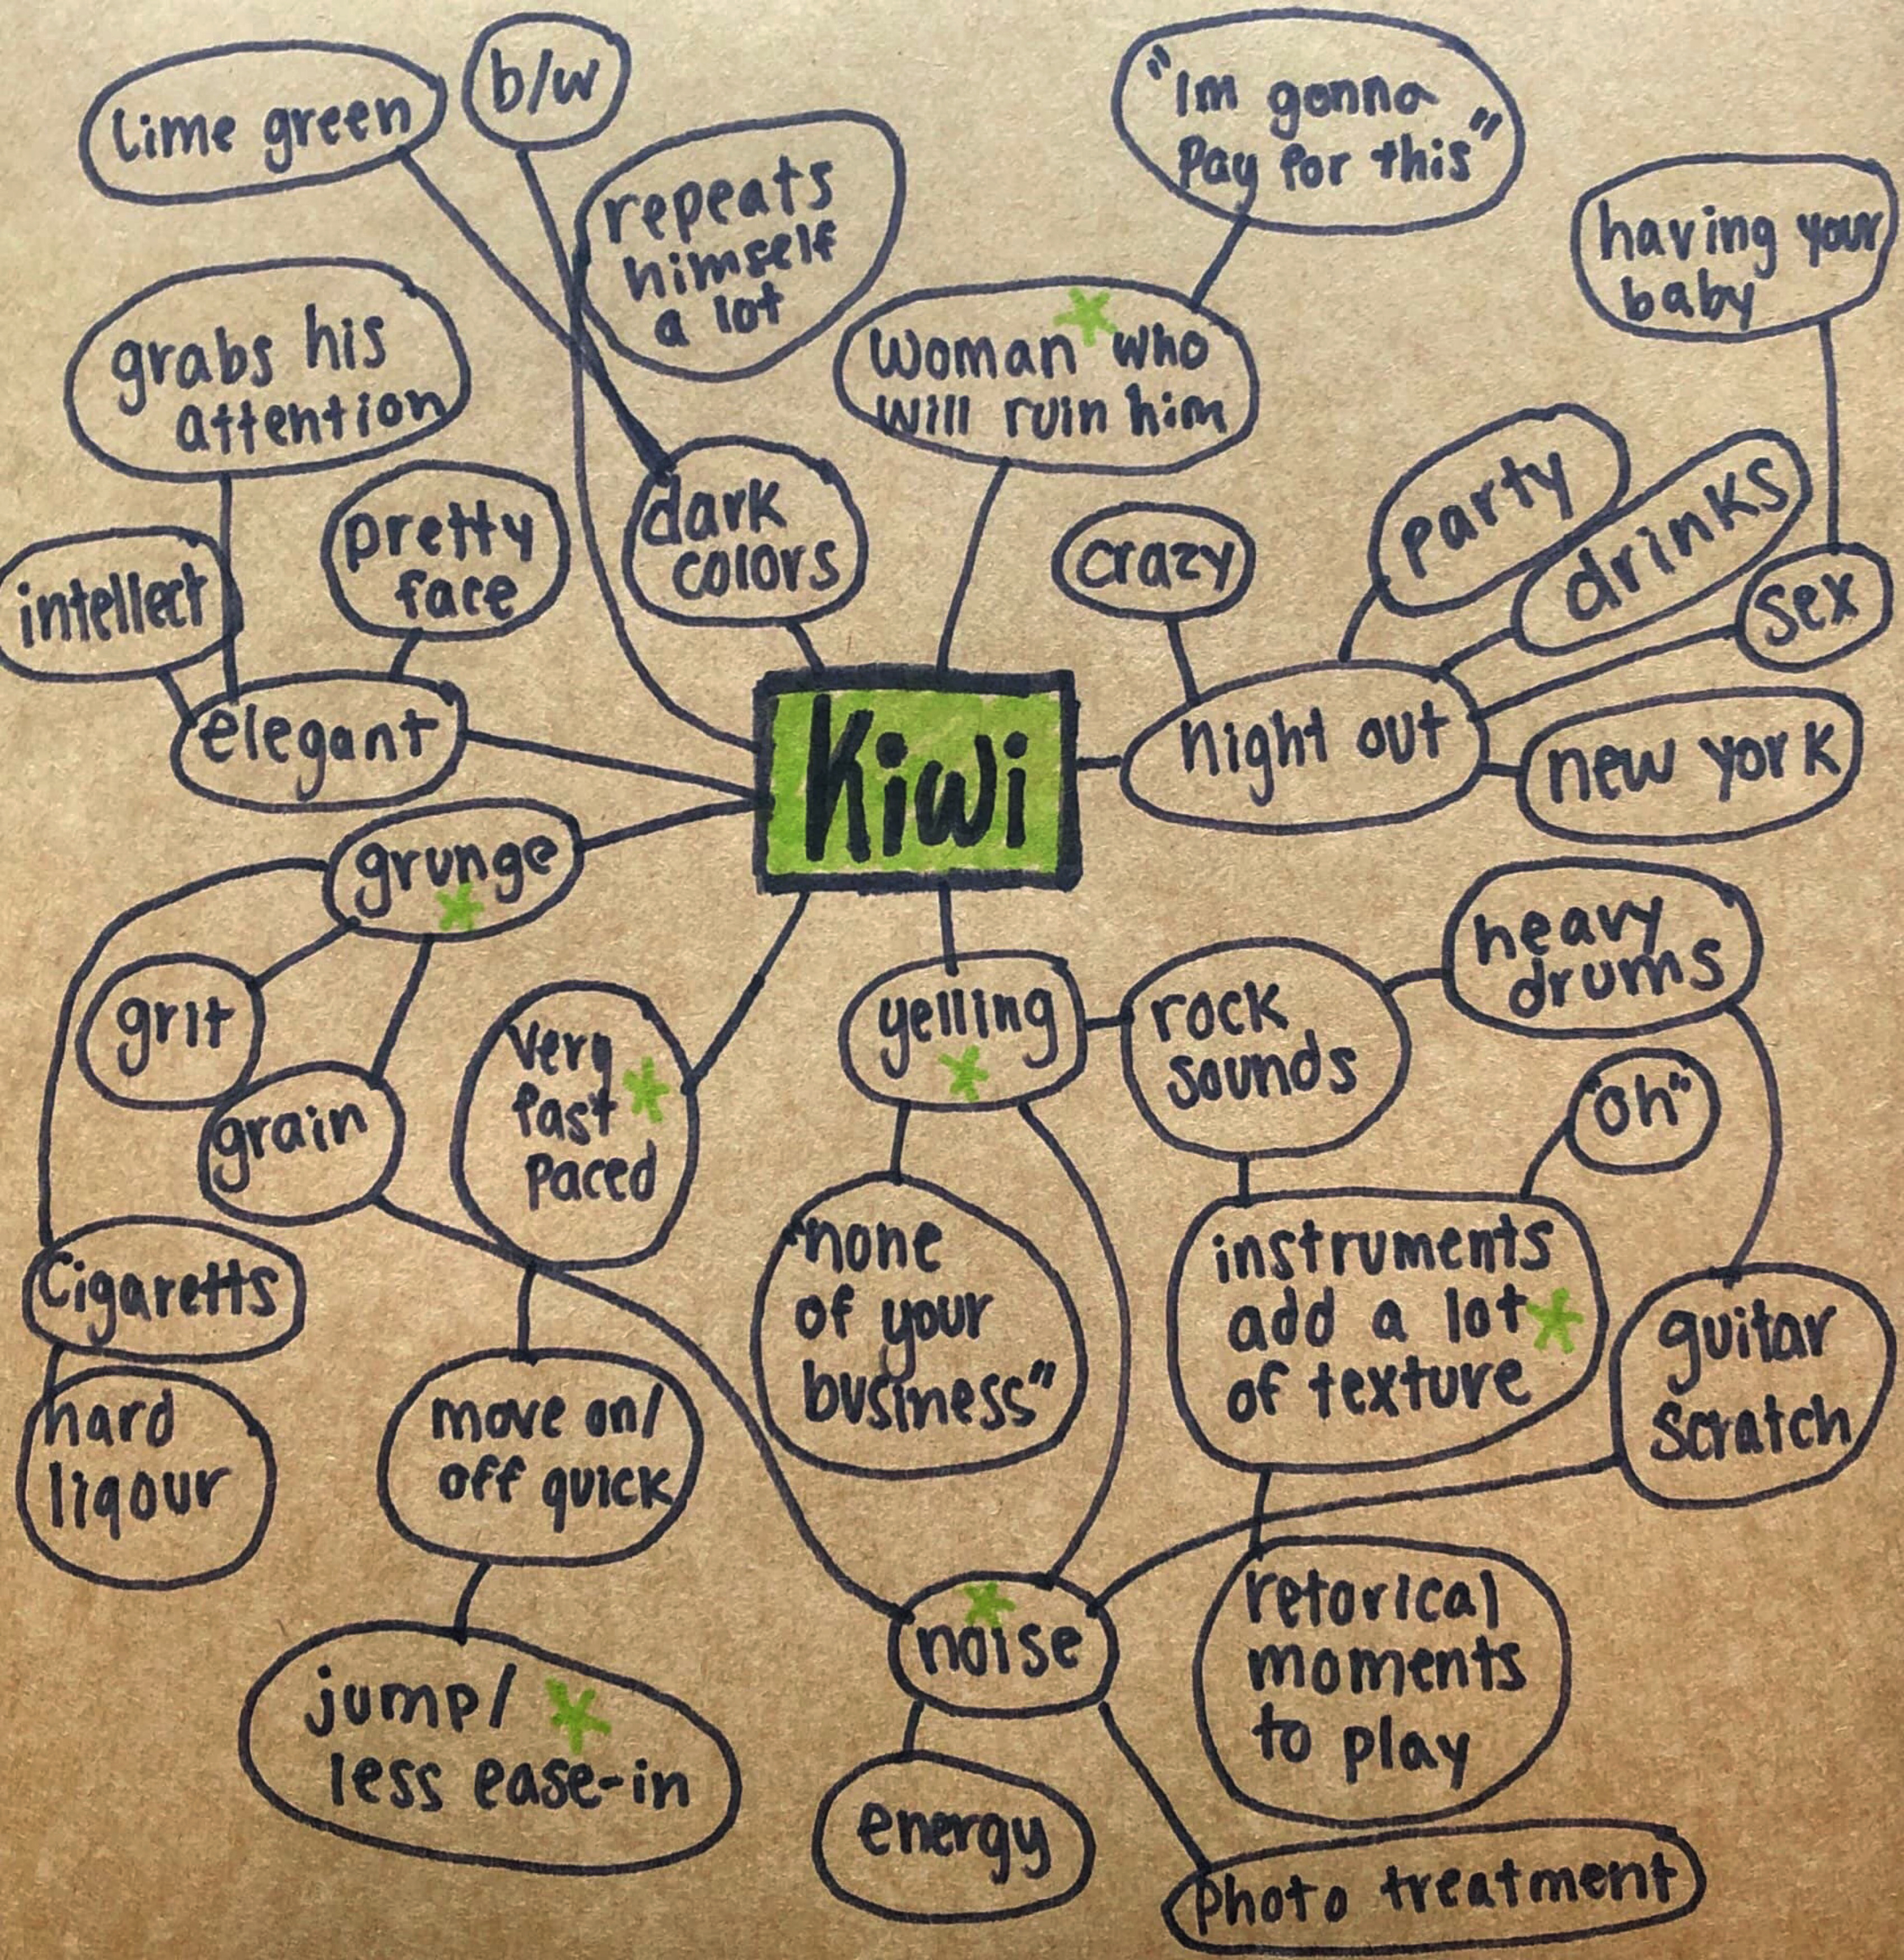 lime green
b/w
"Im gonna
Pay for this"
repeats
himself
a lot
having your
baby
grabs his
attention
woman who
will ruin him
party
drinks
pretty
face
dark
colors
crazy
intellect
sex
elegant
Kiwi
night out
new york
grunge
heavy
drums
grit
very
fast
paced
yelling
rock
sounds
"oh"
grain
"none
of your
business"
instruments
add a lot
of texture
Cigaretts
guitar
scratch
hard
liqour
move on/
off quick
noise
retorical
moments
to play
jump/
less ease-in
energy
photo treatment